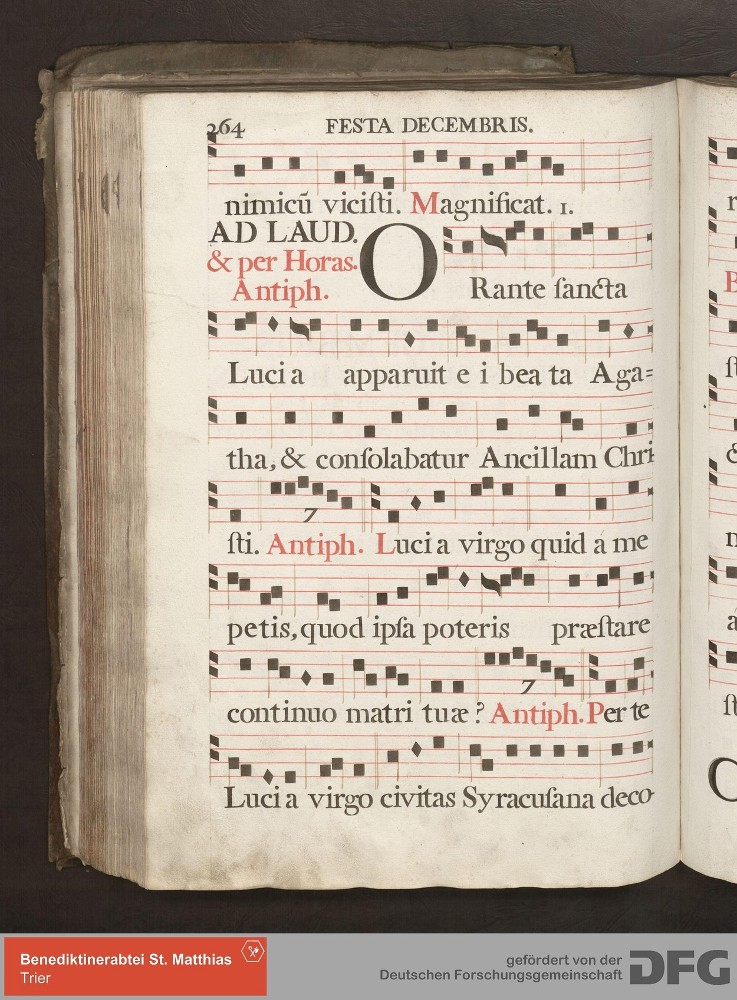 264 FESTA DECEMBRIS.
nimicũ viciſti. Magnificat. 1.
AD LAUD.
& per Horas.
Antiph.
ORante ſancta
Luci a apparuit e i bea ta Aga=
tha, & conſolabatur Ancillam Chri
7
ſti. Antiph. Luci a virgo quid a me
petis, quod ipſa poteris præſtare
7
continuo matri tuæ? Antiph. Per te
Luci a virgo civitas Syracuſana deco-
Benediktinerabtei St. Matthias
Trier
gefördert von der
Deutschen Forschungsgemeinschaft
DFG